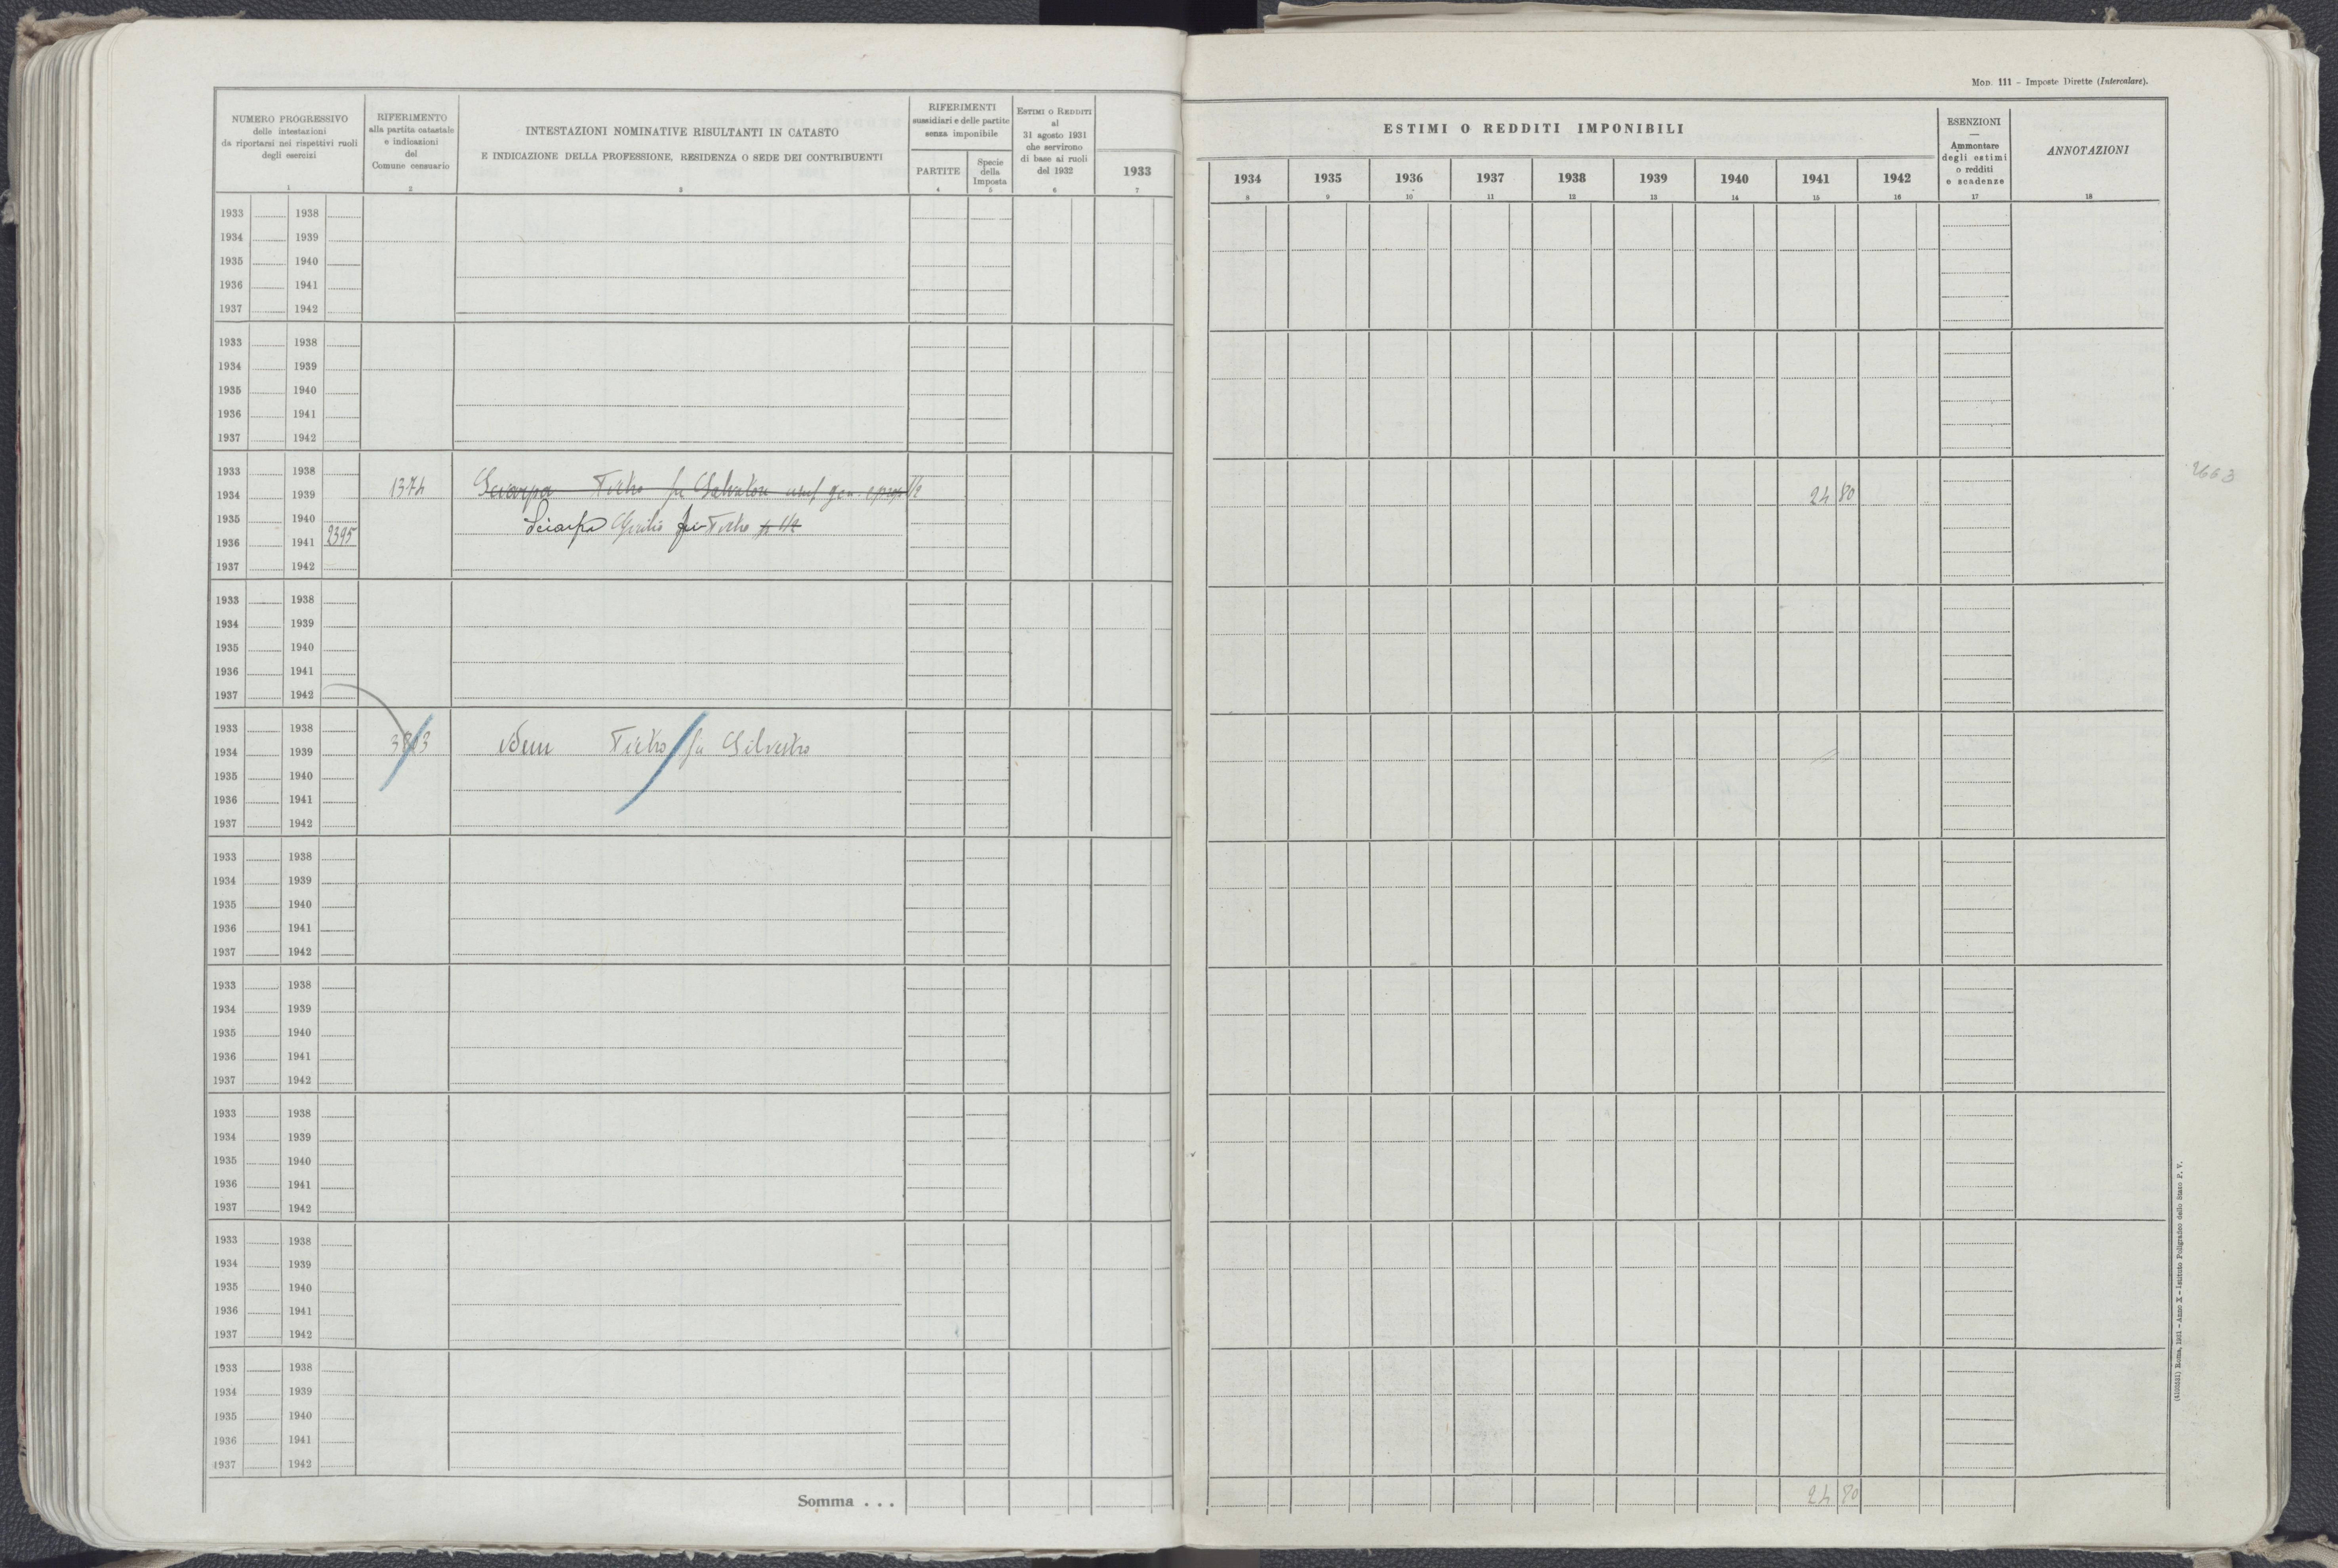 Mod. 111 – Imposte Dirette (Intercalare).
NUMERO PROGRESSIVO
delle intestazioni
da riportarsi nei rispettivi ruoli
degli esercizi
1
RIFERIMENTO
alla partita catastale
e indicazioni
del
Comune censuario
2
INTESTAZIONI NOMINATIVE RISULTANTI IN CATASTO
E INDICAZIONE DELLA PROFESSIONE, RESIDENZA O SEDE DEI CONTRIBUENTI
3
RIFERIMENTI
sussidiari e delle partite
senza imponibile
PARTITE
4
Specie
della
Imposta
5
Estimi o Redditi
al
31 agosto 1931
che servirono
di base ai ruoli
del 1932
6
1933
7
ESTIMI O REDDITI IMPONIBILI
1934 1935 1936 1937 1938 1939 1940 1941 1942
8 9 10 11 12 13 14 15 16
ESENZIONI
—
Ammontare
degli estimi
o redditi
e scadenze
17
ANNOTAZIONI
18
1933 1938
1934 1939
1935 1940
1936 1941
1937 1942
1933 1938
1934 1939
1935 1940
1936 1941
1937 1942
1933 1938
1934 1939 1374 Sciarpa Pietro fu Salvatore usuf gen. e prop 1/2 24 80
1935 1940 Sciarpa fu Pietro p 1/2
1936 1941 2395
1937 1942
1663
1933 1938
1934 1939
1935 1940
1936 1941
1937 1942
1933 1938
1934 1939 Idem Pietro fu Silvestro
1935 1940
1936 1941
1937 1942
1933 1938
1934 1939
1935 1940
1936 1941
1937 1942
1933 1938
1934 1939
1935 1940
1936 1941
1937 1942
1933 1938
1934 1939
1935 1940
1936 1941
1937 1942
1933 1938
1934 1939
1935 1940
1936 1941
1937 1942
1933 1938
1934 1939
1935 1940
1936 1941
1937 1942
Somma . . . 24 80
Roma, 1931 – Anno X – Istituto Poligrafico dello Stato P. V.